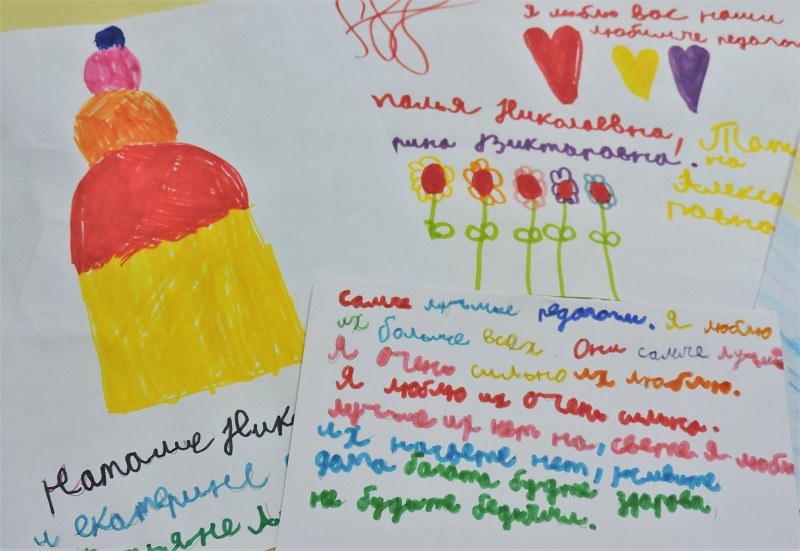 Я люблю вас наши
любимые педагоги
талья Николаевна,
рина Викторовна.
Тать
на
Алекса
ровна
Самые лучшие педагоги. Я люблю
их больше всех. Они самые лучшие
Я очень сильно их люблю.
Я люблю их очень сильно.
лучше их нет на, свете я любл
их насвете нет, живите
долга богата будте здарова
не будьте бедными.
Наталие Нико
и екатерине